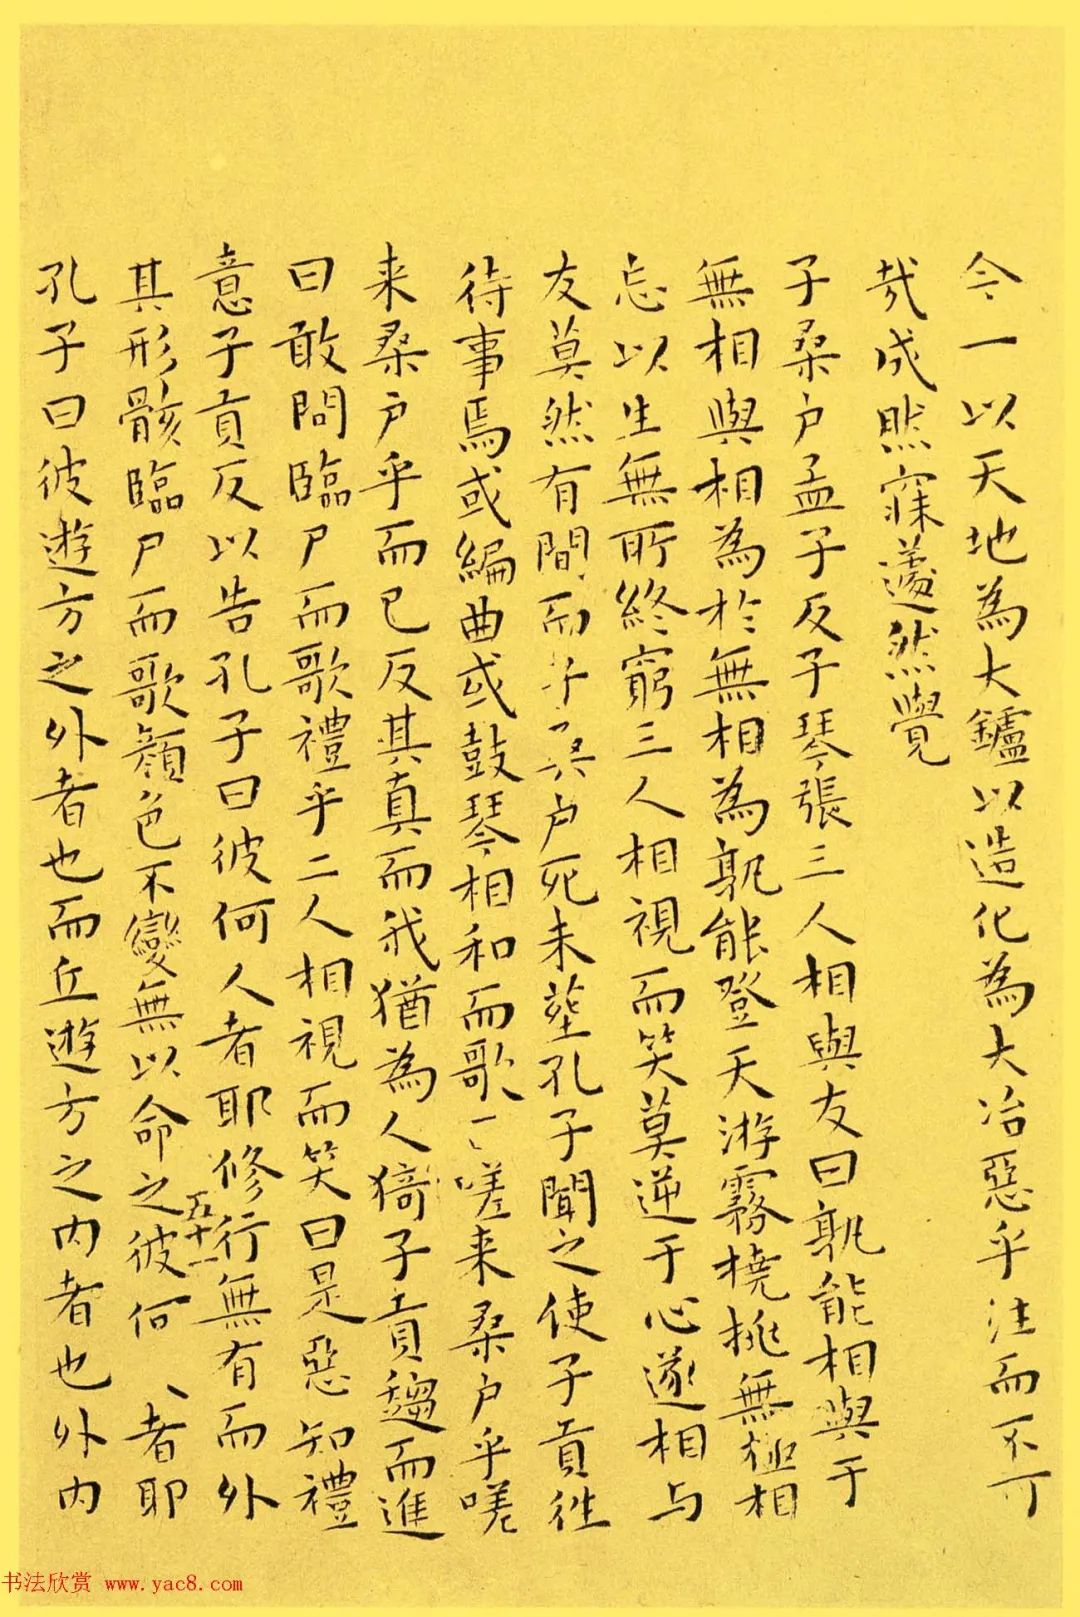 今一以天地為大鑪以造化為大冶惡乎注而不可
哉成然寐蘧然覺
子桑户孟子反子琴張三人相與友曰孰能相與于
無相與相為於無相為孰能登天游霧撓挑無極相
忘以生無所終窮三人相視而笑莫逆于心遂相与
友莫然有間而子桑户死未塟孔子聞之使子貢往
待事焉或編曲或鼓琴相和而歌曰嗟来桑户乎嗟
来桑户乎而已反其真而我猶為人猗子貢趨而進
曰敢問臨尸而歌禮乎二人相視而笑曰是惡知禮
意子貢反以告孔子曰彼何人者耶修行無有而外
其形骸臨尸而歌顏色不變無以命之彼何人者耶
五十一
孔子曰彼遊方之外者也而丘遊方之内者也外内
书法欣赏 www.yac8.com